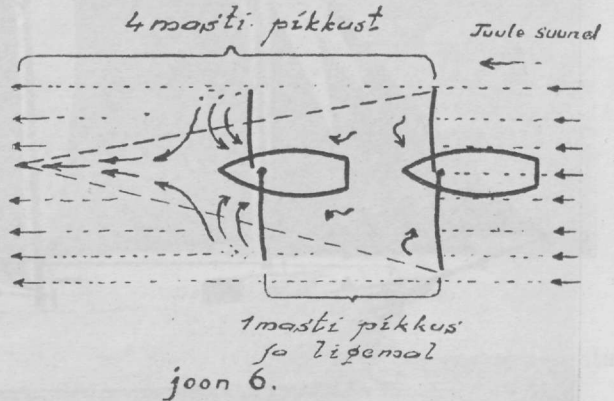 4 masti pikkust
Tuule suunel
1 masti pikkus
ja ligemal
joon 6.